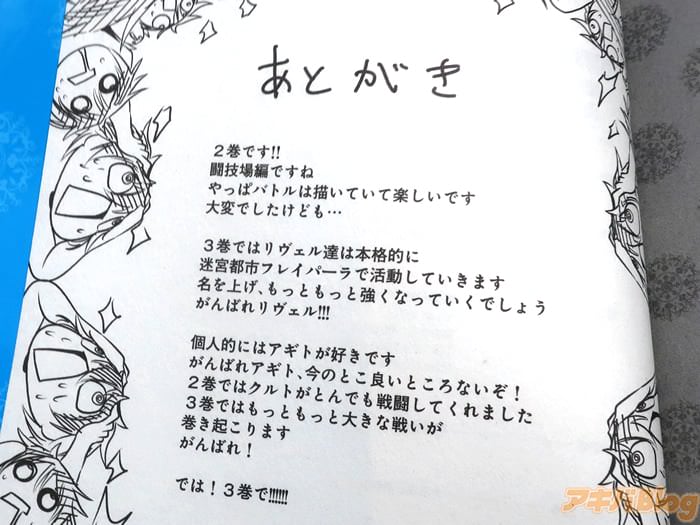 あとがき
2巻です!!
闘技場編ですね
やっぱバトルは描いていて楽しいです
大変でしたけども…
3巻ではリヴェル達は本格的に
迷宮都市フレイパーラで活動していきます
名を上げ、もっともっと強くなっていくでしょう
がんばれリヴェル!!!
個人的にはアギトが好きです
がんばれアギト、今のとこ良いところないぞ！
2巻ではクルトがとんでも戦闘してくれました
3巻ではもっともっと大きな戦いが
巻き起こります
がんばれ！
では！3巻で!!!!!!
アキバBlog